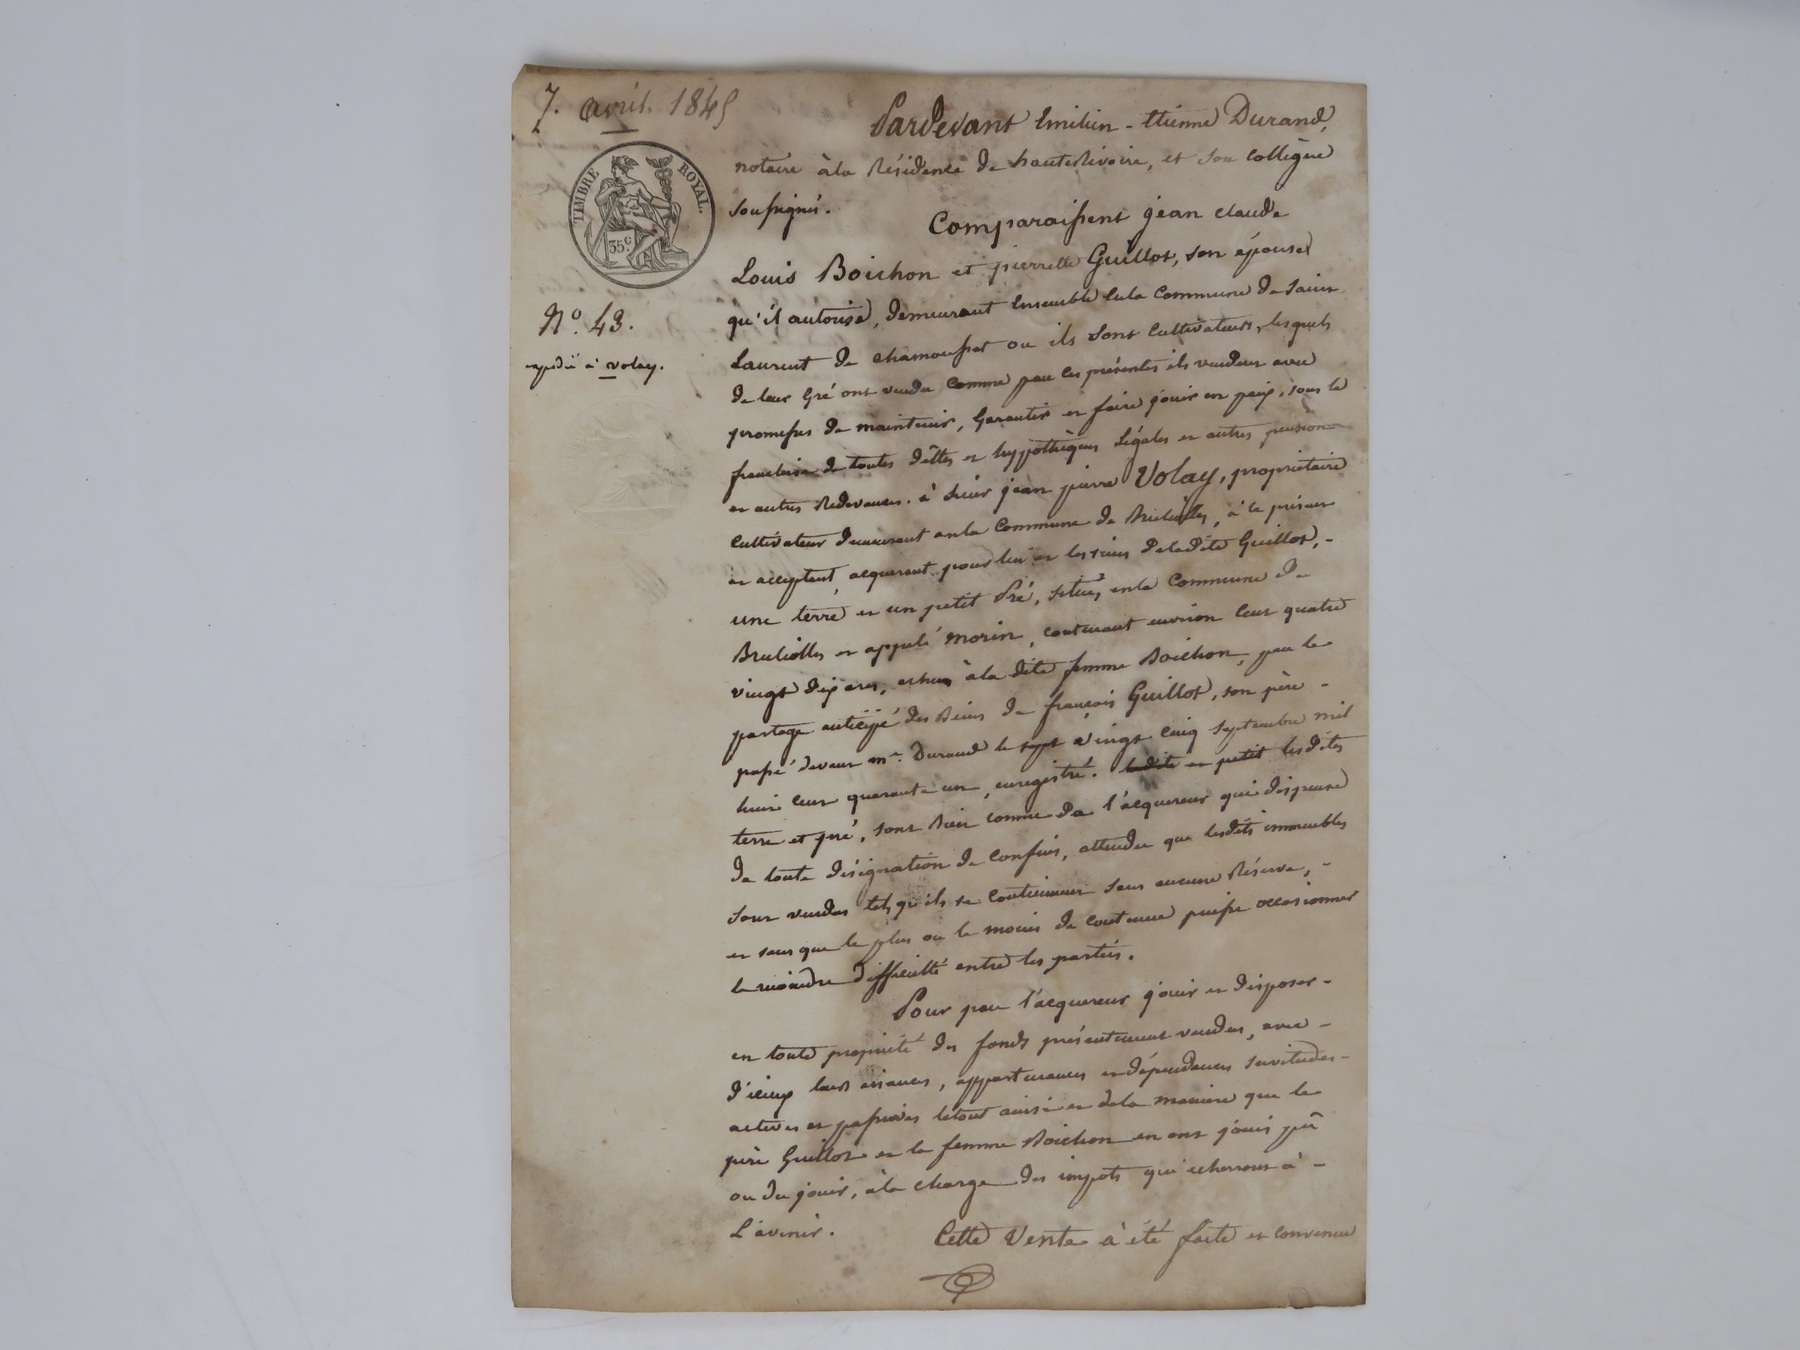 7. avril 1845
TIMBRE ROYAL.
35c.
No. 43.
expédié à Volay.
Pardevant Emilien - Etienne Durand,
notaire à la Résidence de hauteRivoire, et son collègue
soussignés.
Comparaissent jean claude
Louis Boichon et pierrette Guillot, son épouse
qu'il autorise, demeurant Ensemble enla Commune de Saint
Laurent de chamousset ou ils sont Cultivateurs, lesquels
de leur Gré ont vendu Comme par Ces présentes ils vendent avec
promesses de maintenir, Garantir et faire jouir en paix, sous la
franchise de toutes dêttes et hypothèques Légales et autres pension
et autres Redevances. à Sieur jean pierre Volay, propriétaire
Cultivateur demeurant enla Commune de Brulliolles, à ce présent
et acceptent, acquerent pour lui et les siens deladite Guillot, -
une terre et un petit Pré, situés enla Commune de
Brulliolles et appelé morin, contenant environ Cent quatre
vingt dix ares, échus àla dite femme Boichon, par le
partage anticipé des Biens de françois Guillot, son père -
passé devant me. Durand le vingt cinq Septembre mil
huit Cent quarante un, enregistré. et petit lesdites
terre et pré, sont Bien connue de l'acquereur qui dispense
de toute désignation de Confins, attendu que lesdits immeubles
sont vendus tels qu'ils se Contiennent sans aucune Réserve, -
et sans que le plus ou le moins de Contenue puisse occasionner
la moindre difficulté entre les parties.
Pour par l'acquereur jouir et disposer -
en toute propriété des fonds présentement vendus, avec -
d'iceux leurs aisances, appartenances et dépendances servitudes -
actives et passives letout ainsi et dela manière que le
père Guillot et la femme Boichon en ont joui pû
ou du jouir, àla charge des impots qui echerront à -
L'avenir.
Cette Vente à été faite et convenue